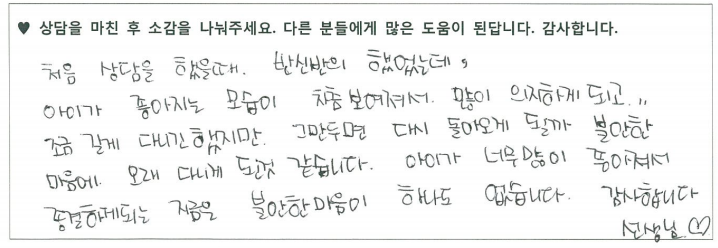 ♥ 상담을 마친 후 소감을 나눠주세요. 다른 분들에게 많은 도움이 된답니다. 감사합니다.
처음 상담을 했을때. 반신반의 했었는데,
아이가 좋아지는 모습이 차츰 보여져서. 많이 의지하게 되고..
조금 길게 다니긴했지만. 그만두면 다시 돌아오게 될까 불안한
마음에. 오래 다니게 된것 같습니다. 아이가 너무많이 좋아져서
종결하게되는 지금은 불안한마음이 하나도 없습니다. 감사합니다
선생님.♡